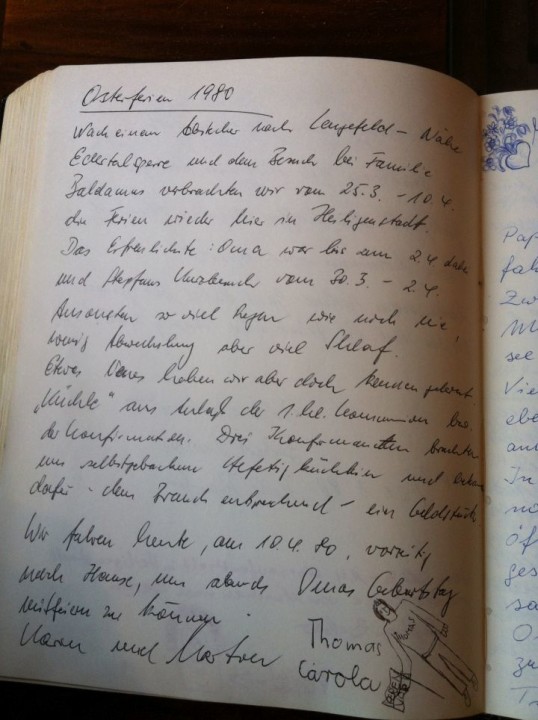 Osterferien 1980
Nach einem Abstecher nach Lengefeld - Nähe
Edertalsperre und dem Besuch bei Familie
Baldamus verbrachten wir vom 25.3. - 10.4.
die Ferien wieder hier in Heiligenstadt.
Das Erfreulichste: Oma war bis am 2.4. dabei
und Stephans Kurzbesuch vom 30.3. - 2.4.
Ansonsten so viel Regen wie noch nie,
wenig Abwechslung aber viel Schlaf.
Etwas Neues haben wir aber doch kennen gelernt
"Küchle" aus Anlaß der 1. hl. Kommunion bzw.
der Konfirmation. Drei Konfirmanden brachten
uns selbstgebackene Hefeteigküchlein und
dafür - dem Brauch entsprechend - ein Geldstück
Wir fahren heute, am 10.4.80, vorzeitig
nach Hause, um abends Omas Geburtstag
mitfeiern zu können.
Karen und
Thomas
Carola
Pap
fah
Zw
see
Vie
ebe
In
no
ges
sa
O
zu